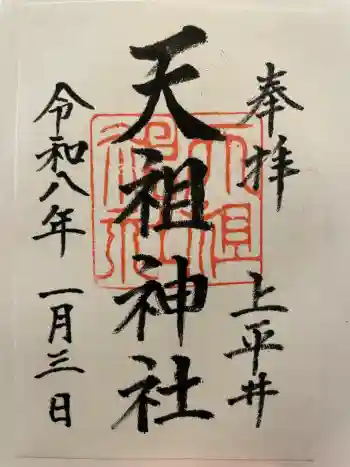 奉拝
上平井
天祖神社
令和八年
一月三日